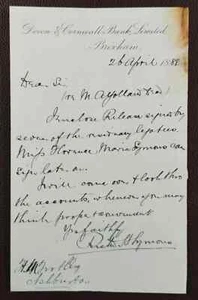 Devon & Cornwall Bank, Limited
Brixham.
26 April 188
Dear Sir
I enclose Release signed by
seven of the residuary legatees
Miss Florence Marie Symons can
sign later on.
I will come over & look thro
the accounts, whenever you may
think proper & convenient
Yrs faithf
Symons
Ashburton